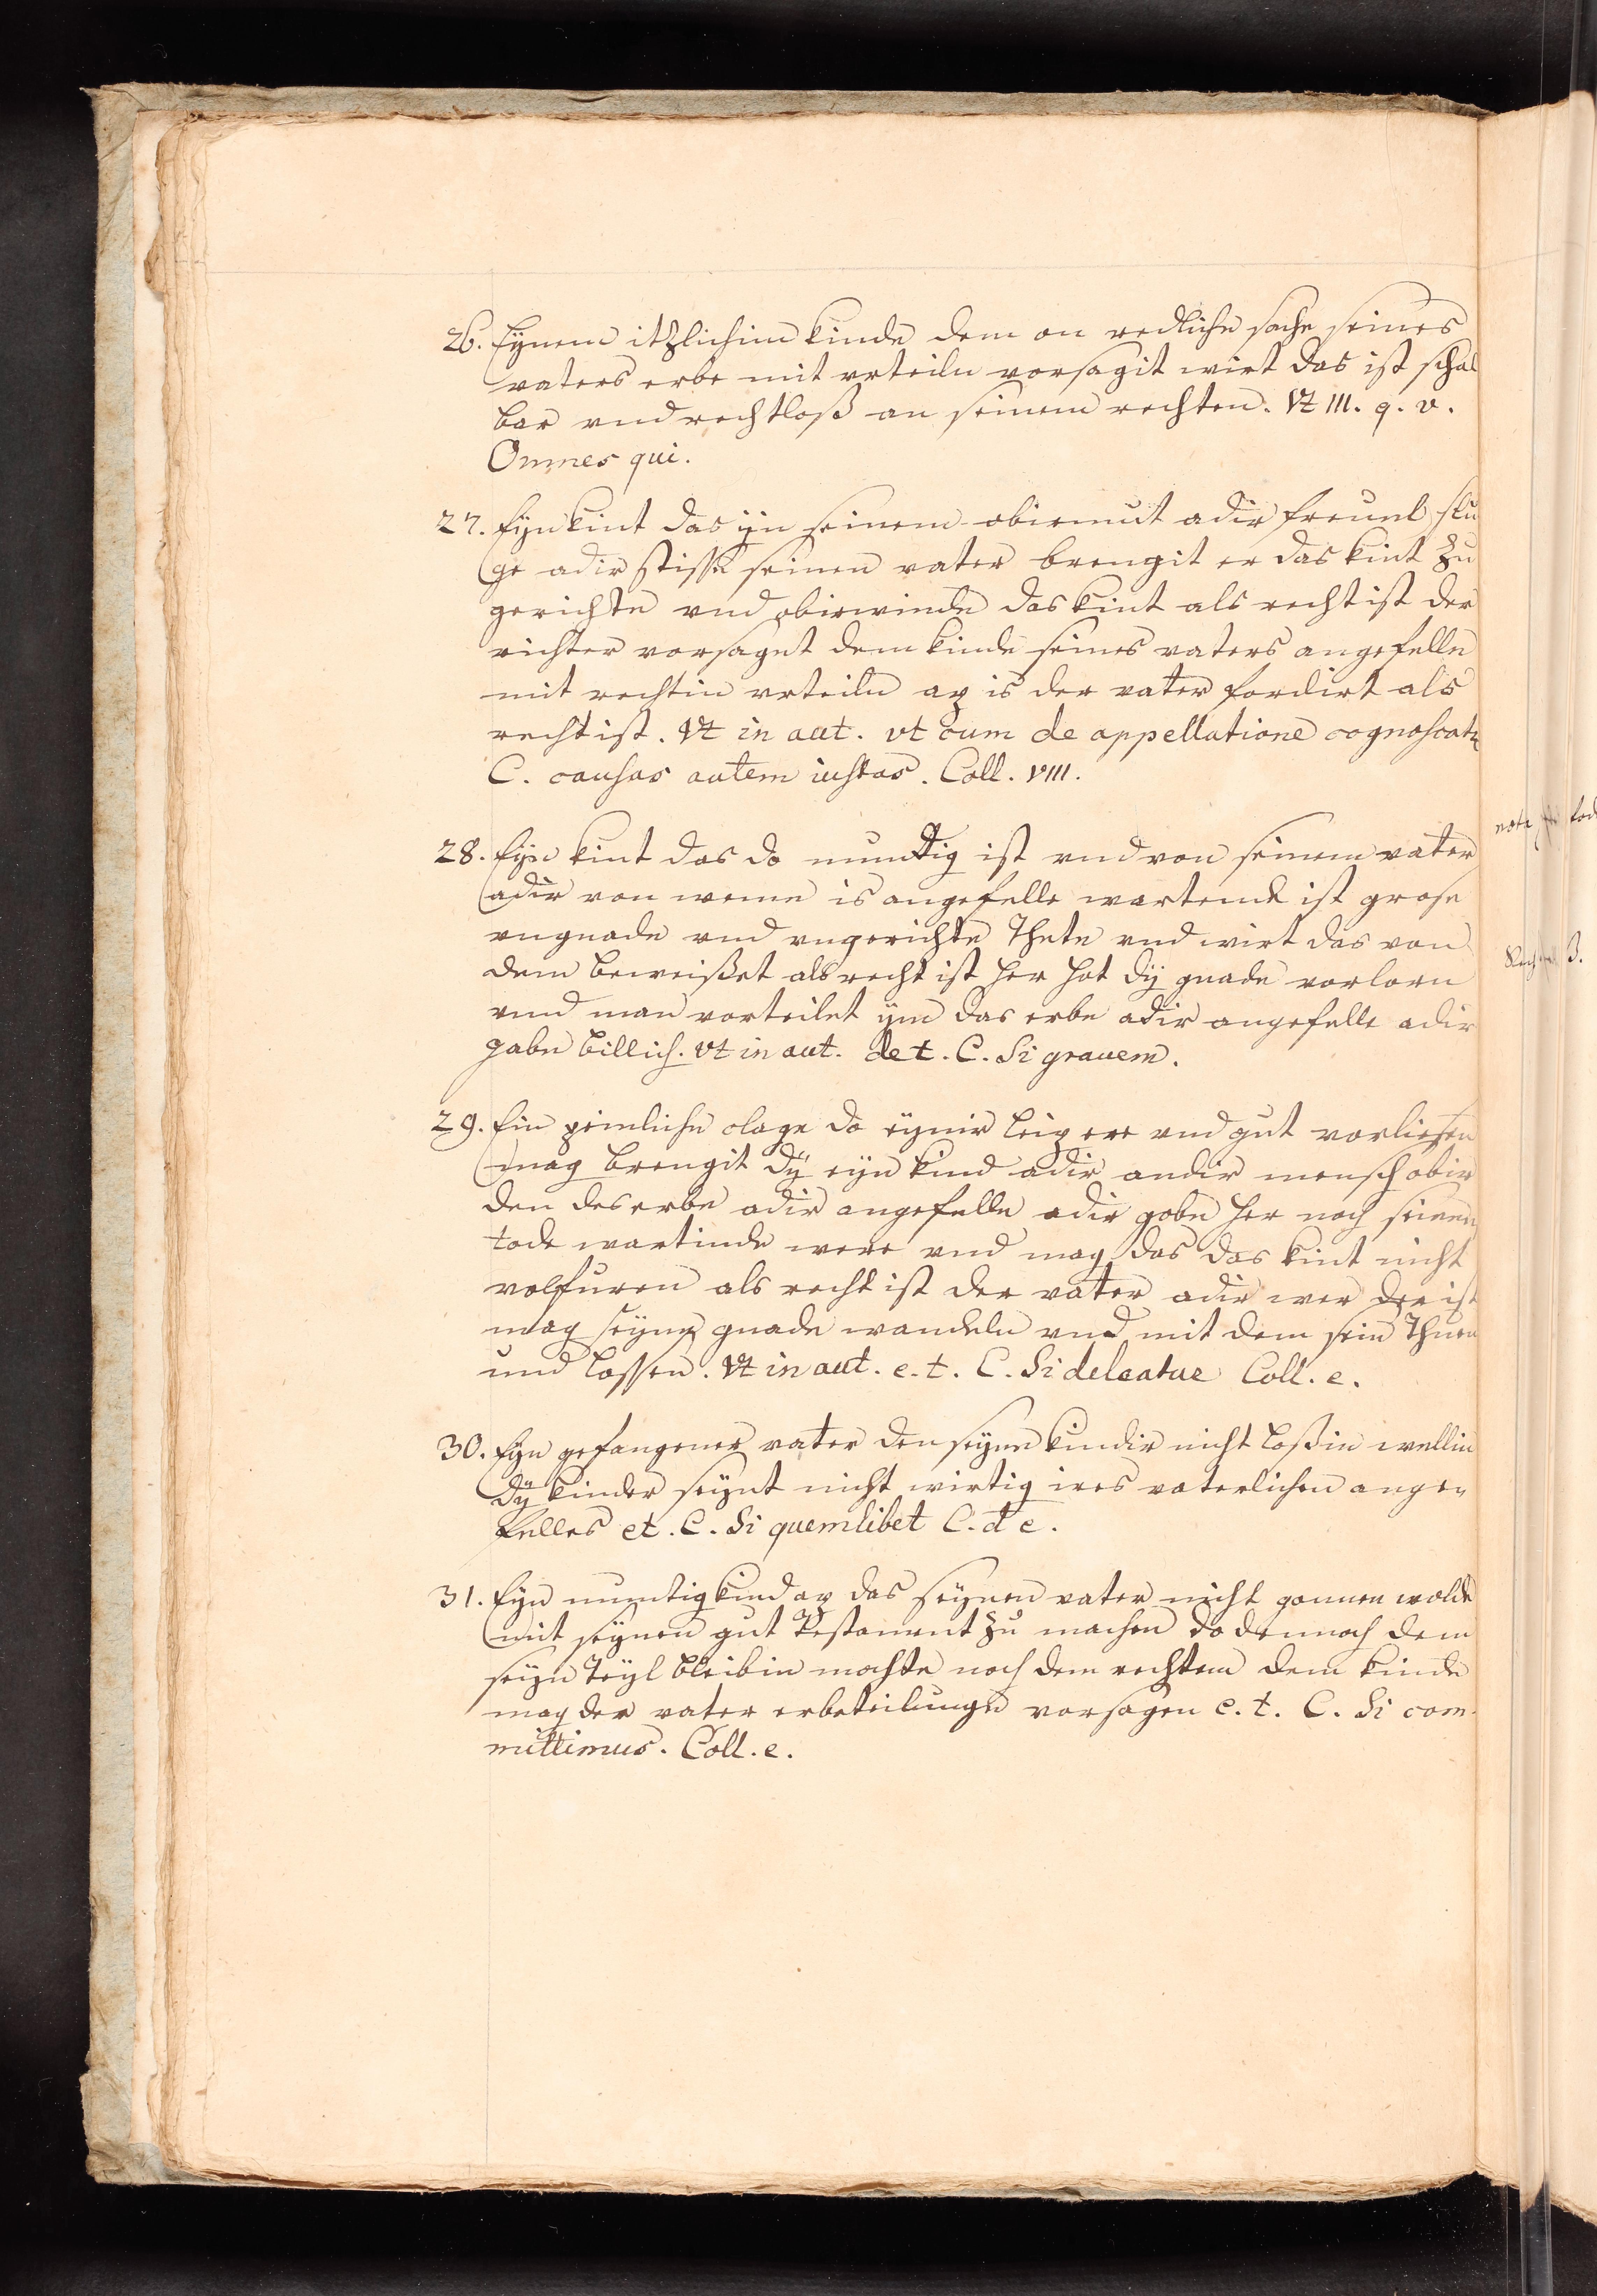 26. Eynem itzlichim kinde dem on redliche sache seines
vaters erbe mit vrteiln vorsagit wirt das ist schal
bar vnd rechtloß an seinem rechten. Vt III. q. v.
Omnes qui.
27. Eyn kint das yn seinem obirmut adir freuel slu
ge adir stisse seinen vater brengit er das kint zu
gerichte vnd obirwinde das kint als recht ist der
richter vorsaget dem kinde seines vaters angefelle
mit rechtin vrteiln ap is der vater fordirt als
recht ist. Vt in aut. vt cum de appellatione cognoscatr
C. causas autem iustas. Coll. VIII.
28. Eyn kint das do mundtig ist vnd von seinem vater
adir von weme is angefelle wartende ist grose
vngnade vnd vngerichte Thete vnd wirt das von
dem beweißet als recht ist her hot dÿ gnade vorlorn
vnd man vorteilet ym das erbe adir angefelle adir
gabe billich. vt in aut. de t. C. Si grauem.
29. Ein peinliche clage do eynir leip ere vnd gut vorliesen
mag brengit dÿ eyn kind adir andir mensch obir
den des erbe adir angefelle adir gobe her noch seinen
tode wartinde were vnd mag das das kint nicht
volfuren als recht ist der vater adir wer der ist
mag seyne gnade wandeln vnd mit dem sein Thuen
und lossen. Vt in aut. e. t. C. Si deleatur Coll. e.
30. Eyn gefangener vater den seyne kindir nicht loßin wellin
dÿ kinder seynt nicht wirtig ires vaterlichen ange-
felles et. C. Si quemlibet C. d e.
31. Eyn mundtig kind ap das seynen vater nicht gonnen wolde
mit seynen gut Testament zu machen do dennoch dem
seyn Teyl bleibin mochte noch dem rechtem dem kinde
mag der vater erbeteilunge vorsagen e. t. C. Si com-
mittimus. Coll. e.